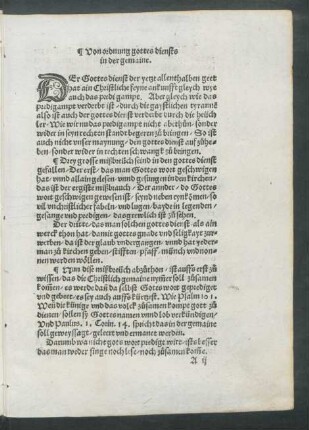 ¶ Von ordnung gottes diensts
in der gemaine.
DEr Gottes dienst der yetzt allenthalben geet
hat ain Christliche feyne ankunfft gleych wye
auch das predigampt. Aber gleych wie das
predigampt verderbt ist durch die gaistlichen tyranne
also ist auch der gottes dienst verderbt durch die heüch
ler. Wie wir nu das predigampt nicht abethůn / sonder
wider in seyn rechten standt begeren zů bringen / So ist
auch nicht vnser maynung / den gottes dienst auf zůhe-
ben / sonder wider in rechten schwangk zů bringen.
¶ Drey grosse mißbreüch seind in den gottes dienst
gefallen. Der erst / das man Gottes wort geschwigen
hat / vnnd allain gelesen / vnnd gesungen in den kirchen /
das ist der ergiste mißbrauch. Der annder / do Gottes
wort geschwigen gewesen ist / seynd neben eyn kōmen / so
vil vnchristlicher fabeln / vnd lugen / bayde in legenden /
gesange vnd predigen / das grewlich ist zů sehen.
Der dritte / das man solchen gottes dienst als ain
werck thon hat / damit gottes gnade vnd seligkayt zu er-
werben / da ist der glaub vndergangen / vnnd hat yeder-
man zů kirchen geben / stifften / pfaff / münch vnd nonnen
werden wöllen.
¶ Nun dise mißbreüch abzůthon / ist auffs erst zů
wissen / das die Christlich gemain nymmer soll zůsamen
kom̄en / es werde dañ da selbst Gotes wort geprediget
vnd gebetet / es sey auch auffs kürtzist. Wie Psalm 101.
Wen die künige vnd das volck zůsamen kompt gott zů
dienen / sollen sy Gottes namen vnnd lob verkündigen /
Vnd Paulus. 1. Corin. 14. spricht das in der gemaine
soll geweyssagt / gelert vnd ermanet werden.
Darumb wa nicht gots wort predigt wirt / ists besser
das man weder singe noch lese / noch zůsamen kom̄e.
A ij